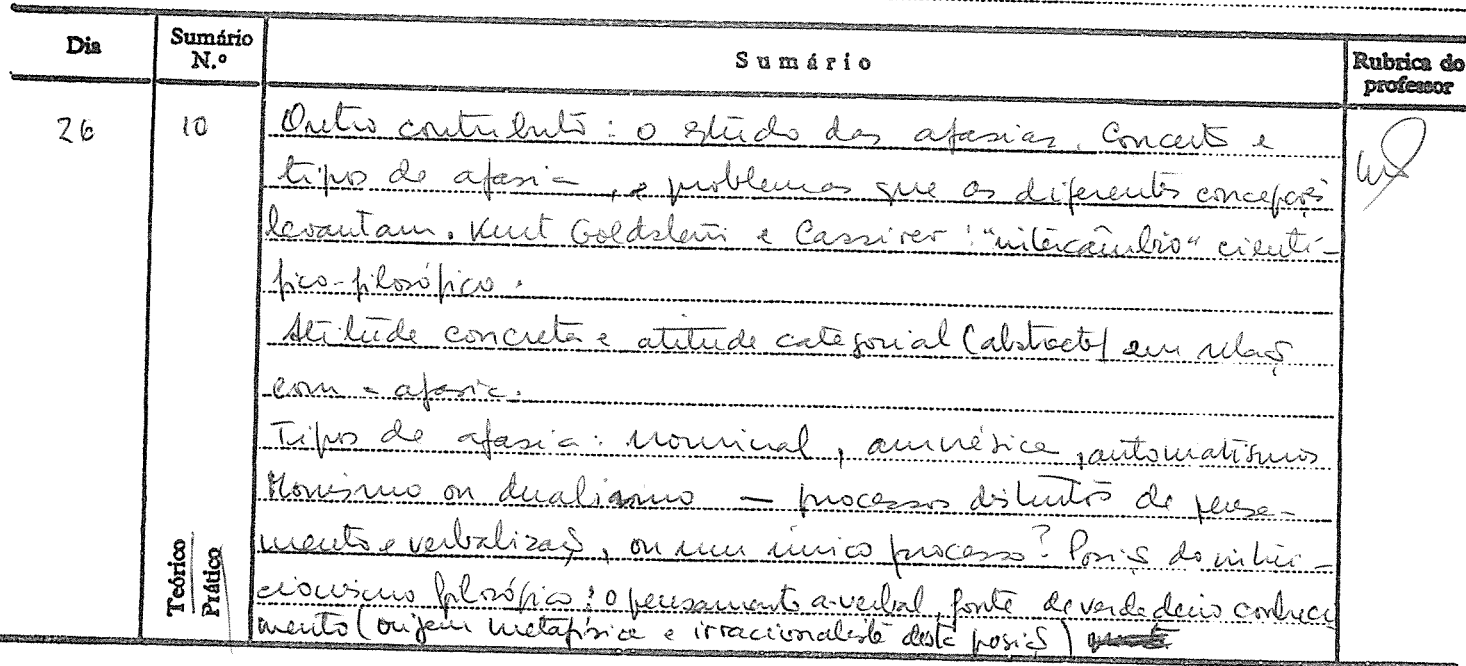 Dia
Sumário N.º
Sumário
Rubrica do professor
26
10
Outro contributo: o estudo das afasias. Conceito e
tipos de afasia, e problemas que as diferentes concepções
levantam. Kurt Goldstein e Cassirer: "intercâmbio" cientí-
fico-filosófico.
Atitude concreta e atitude categorial (abstracta) em relaç
com a afasia.
Tipos de afasia: nominal, amnésica, automatismos
Monismo ou dualismo — processos distintos de pensa-
mento e verbalizaç, ou um único processo? Posiç do intui-
cionismo filosófico: o pensamento a-verbal, fonte de verdadeiro conheci
mento (origem metafísica e irracionalista desta posiç)
Teórico
Prático